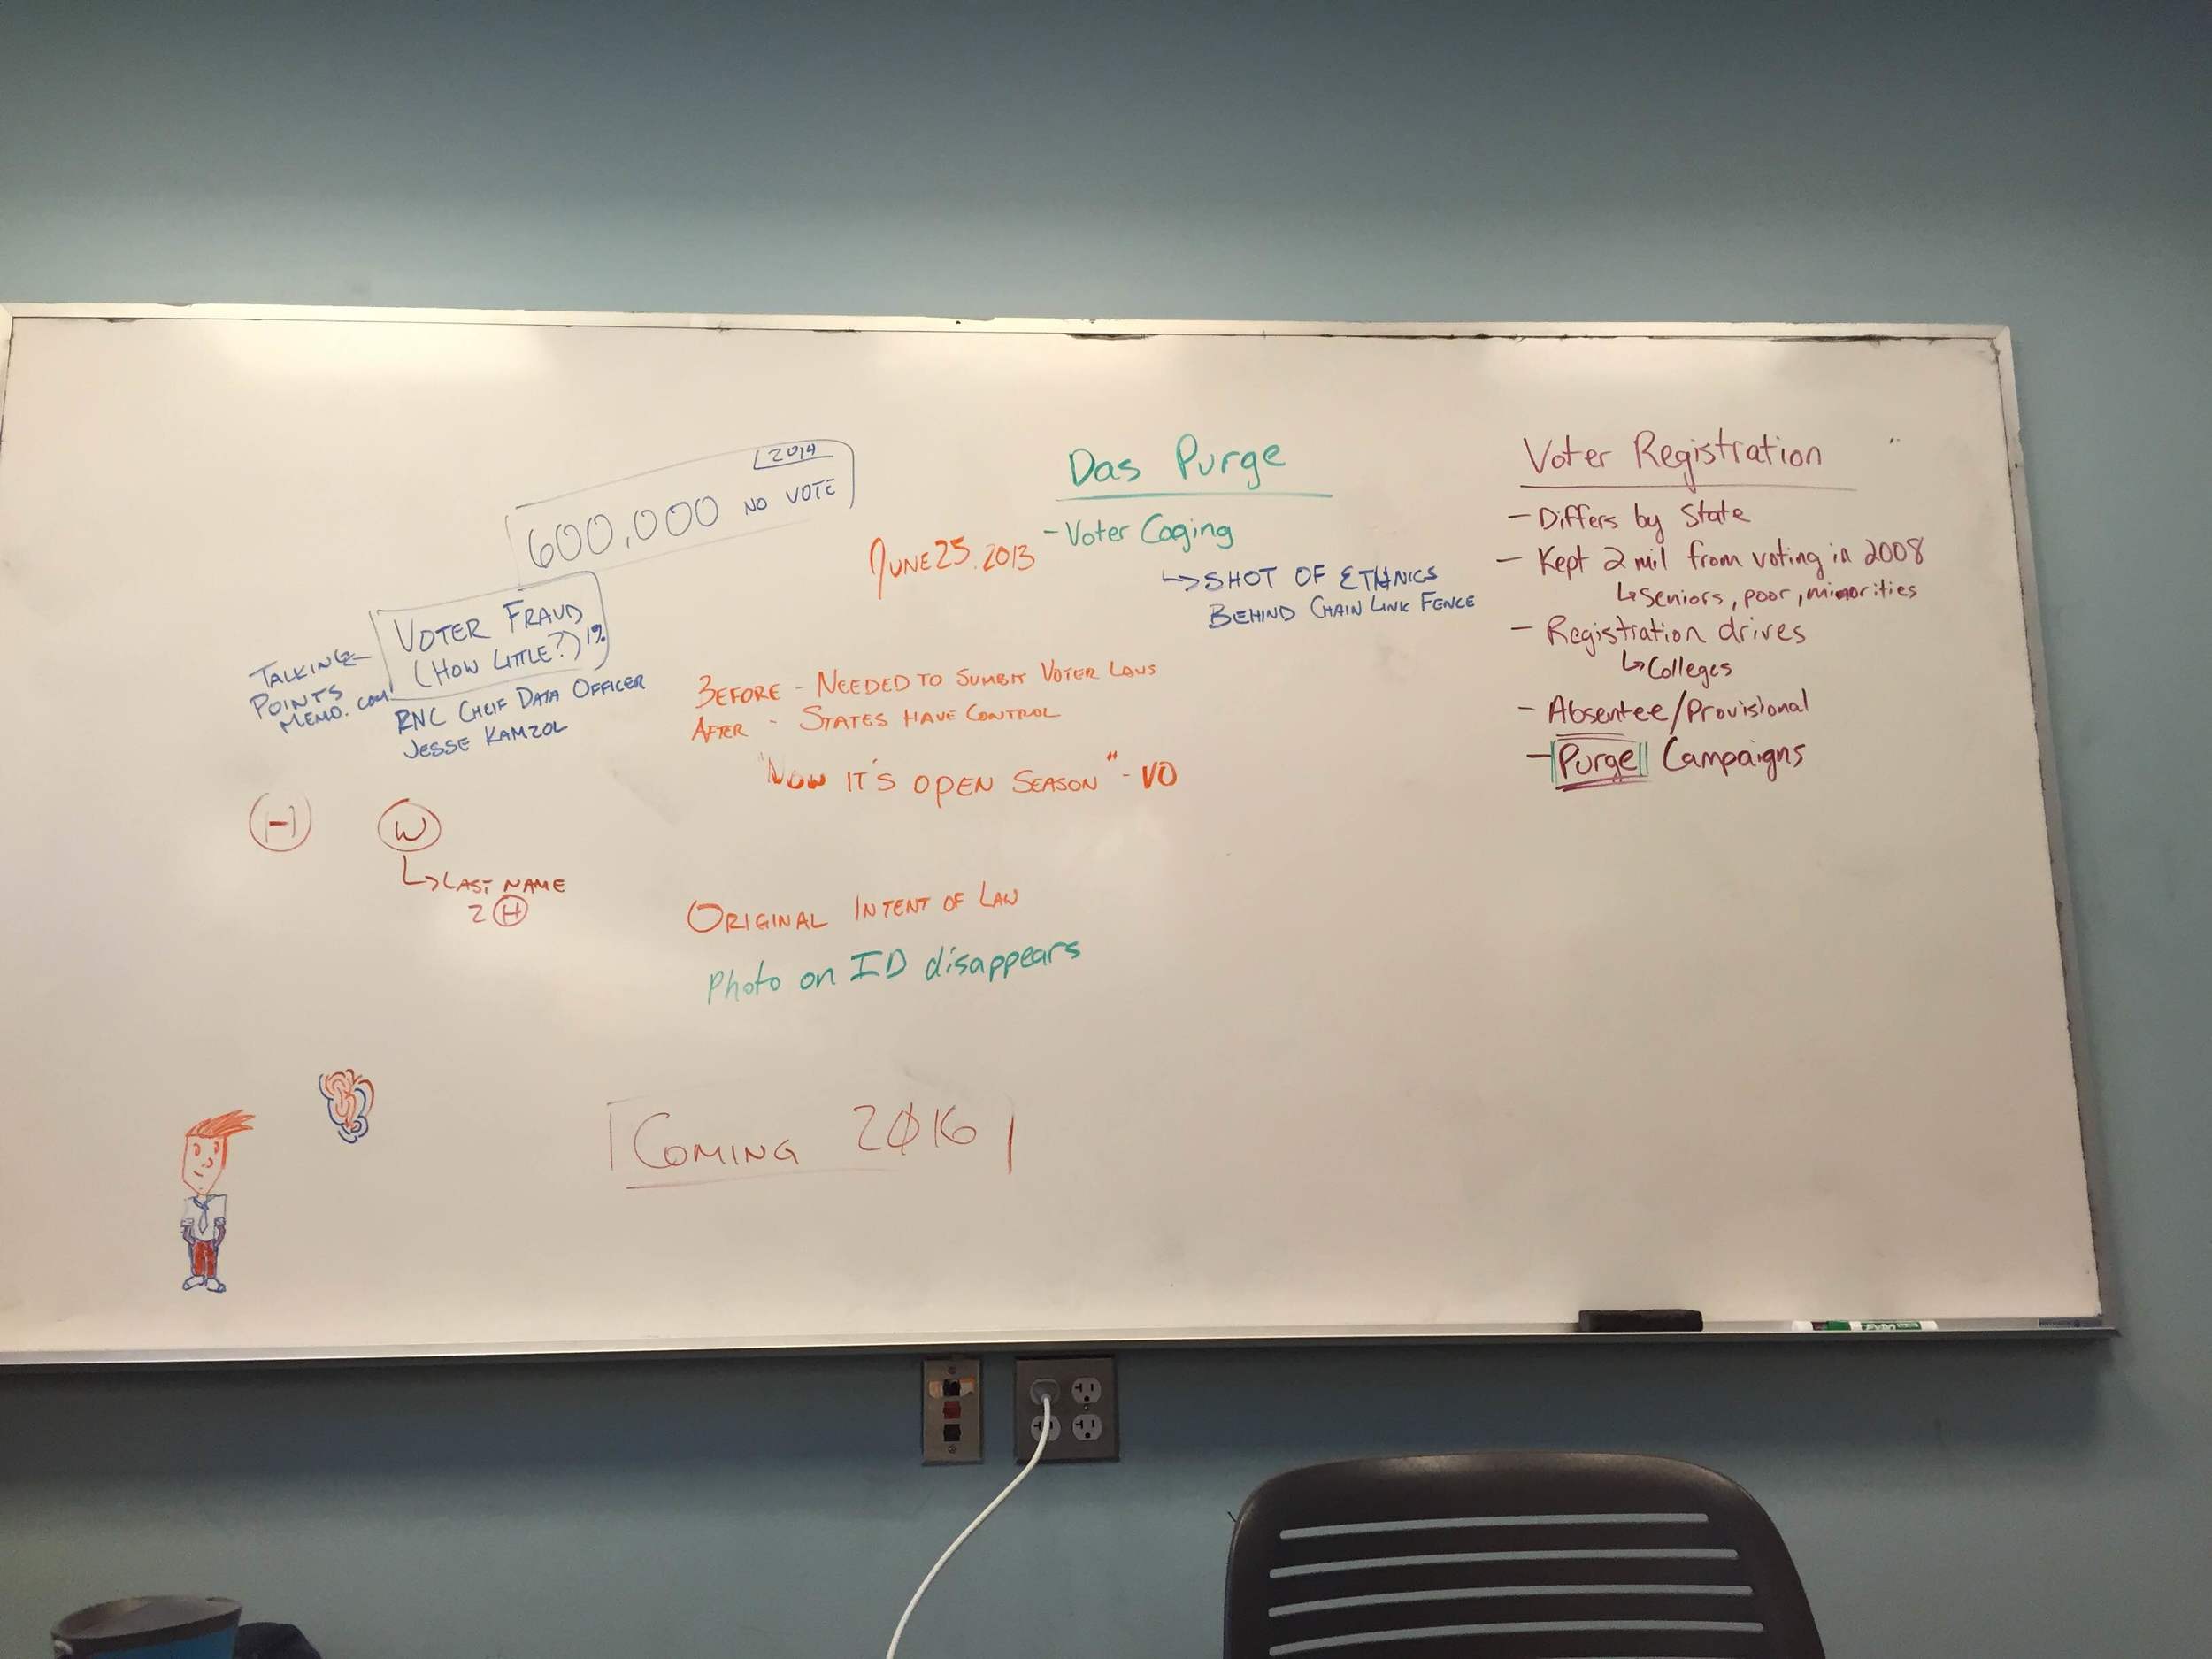 2014
600,000 NO VOTE
VOTER FRAUD
(HOW LITTLE?) 1%
TALKING
POINTS
MEMO.COM
RNC CHEIF DATA OFFICER
JESSE KAMZOL
H
W
LAST NAME
2 H
JUNE 25, 2013
BEFORE - NEEDED TO SUMBIT VOTER LAWS
AFTER - STATES HAVE CONTROL
"NOW IT'S OPEN SEASON" - VO
ORIGINAL INTENT OF LAW
Photo on ID disappears
COMING 2016
Das Purge
- Voter Caging
SHOT OF ETHNICS
BEHIND CHAIN LINK FENCE
Voter Registration
- Differs by State
- Kept 2 mil from voting in 2008
Seniors, poor, minorities
- Registration drives
Colleges
- Absentee/Provisional
- Purge Campaigns